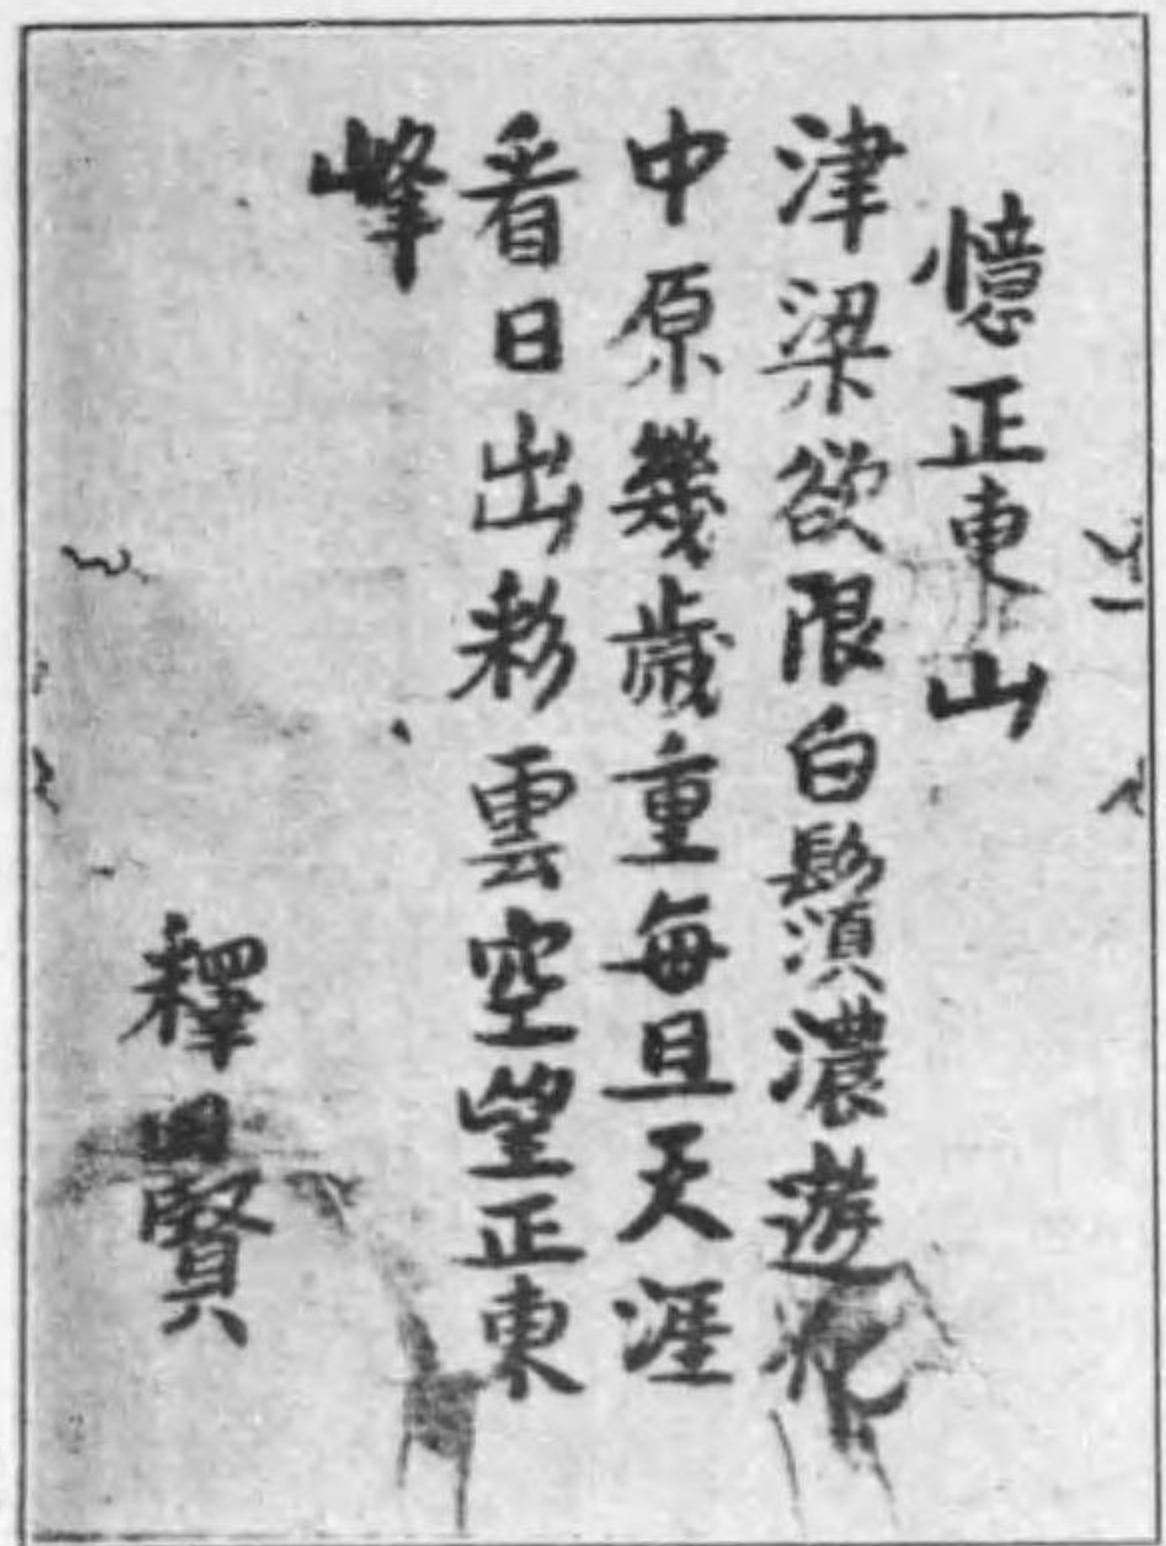 憶正東山
津梁欲限白鬚濃遊
中原幾歲重每旦天涯
看日出彩雲空望正東
峰
釋思賢